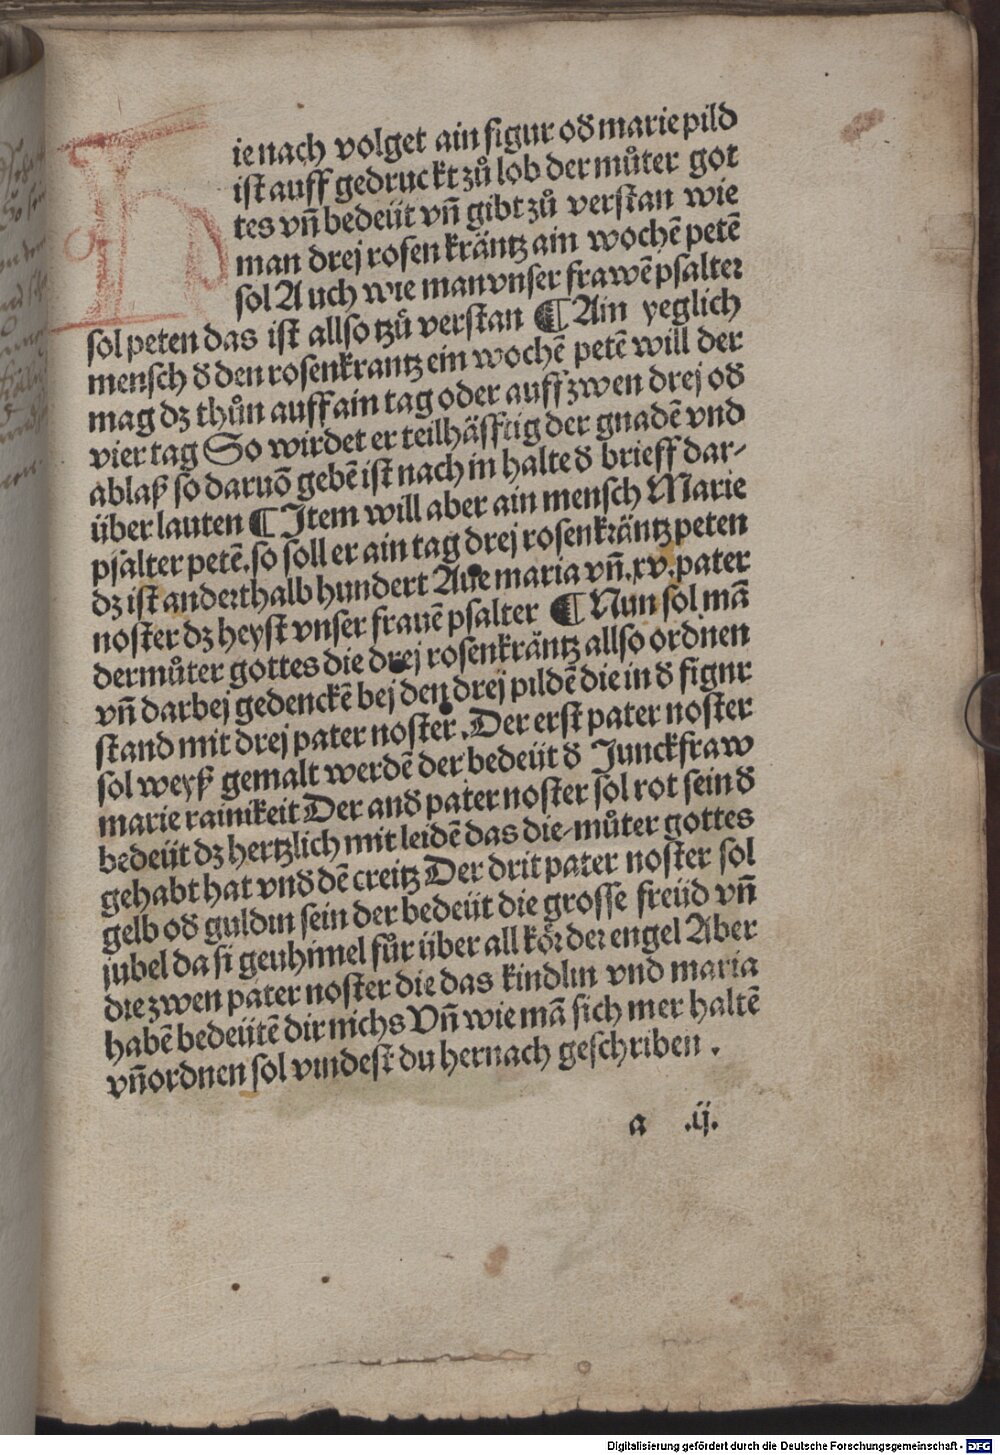 H
ie nach volget ain figur oď marie pild
ist auff gedruckt zů lob der můter got
tes vn̄ bedeüt vn̄ gibt zů verstan wie
man drej rosen kräntz ain wochē petē
sol Auch wie man vnser frawē psalter
sol peten das ist allso tzů verstan ¶ Ain yeglich
mensch ď den rosenkrantz ein wochē petē will der
mag dz thůn auff ain tag oder auff zwen drej oď
vier tag So wirdet er teilhäfftig der gnadē vnd
ablaß so daruō gebē ist nach in halte ď brieff dar-
über lauten ¶ Item will aber ain mensch Marie
psalter petē. so soll er ain tag drej rosenkräntz peten
dz ist anderthalb hundert Aue maria vn̄ .xv. pater
noster dz heyst vnser frauē psalter ¶ Nun sol mā
der můter gottes die drej rosenkräntz allso ordnen
vn̄ darbej gedenckē bej den drej pildē die in ď figur
stand mit drej pater noster. Der erst pater noster
sol weyß gemalt werdē der bedeüt ď Junckfraw
marie rainikeit Der anď pater noster sol rot sein ď
bedeüt dz hertzlich mit leidē das die-můter gottes
gehabt hat vnď dē creitz Der drit pater noster sol
gelb oď guldin sein der bedeüt die grosse freüd vn̄
jubel da si geuhimel fůr über all kör der engel Aber
die zwen pater noster die das kindlin vnd maria
habē bedeütē dir nichs Vn̄ wie mā sich mer haltē
vn̄ ordnen sol vindest du hernach geschriben .
a .ij.
Digitalisierung gefördert durch die Deutsche Forschungsgemeinschaft - DFG